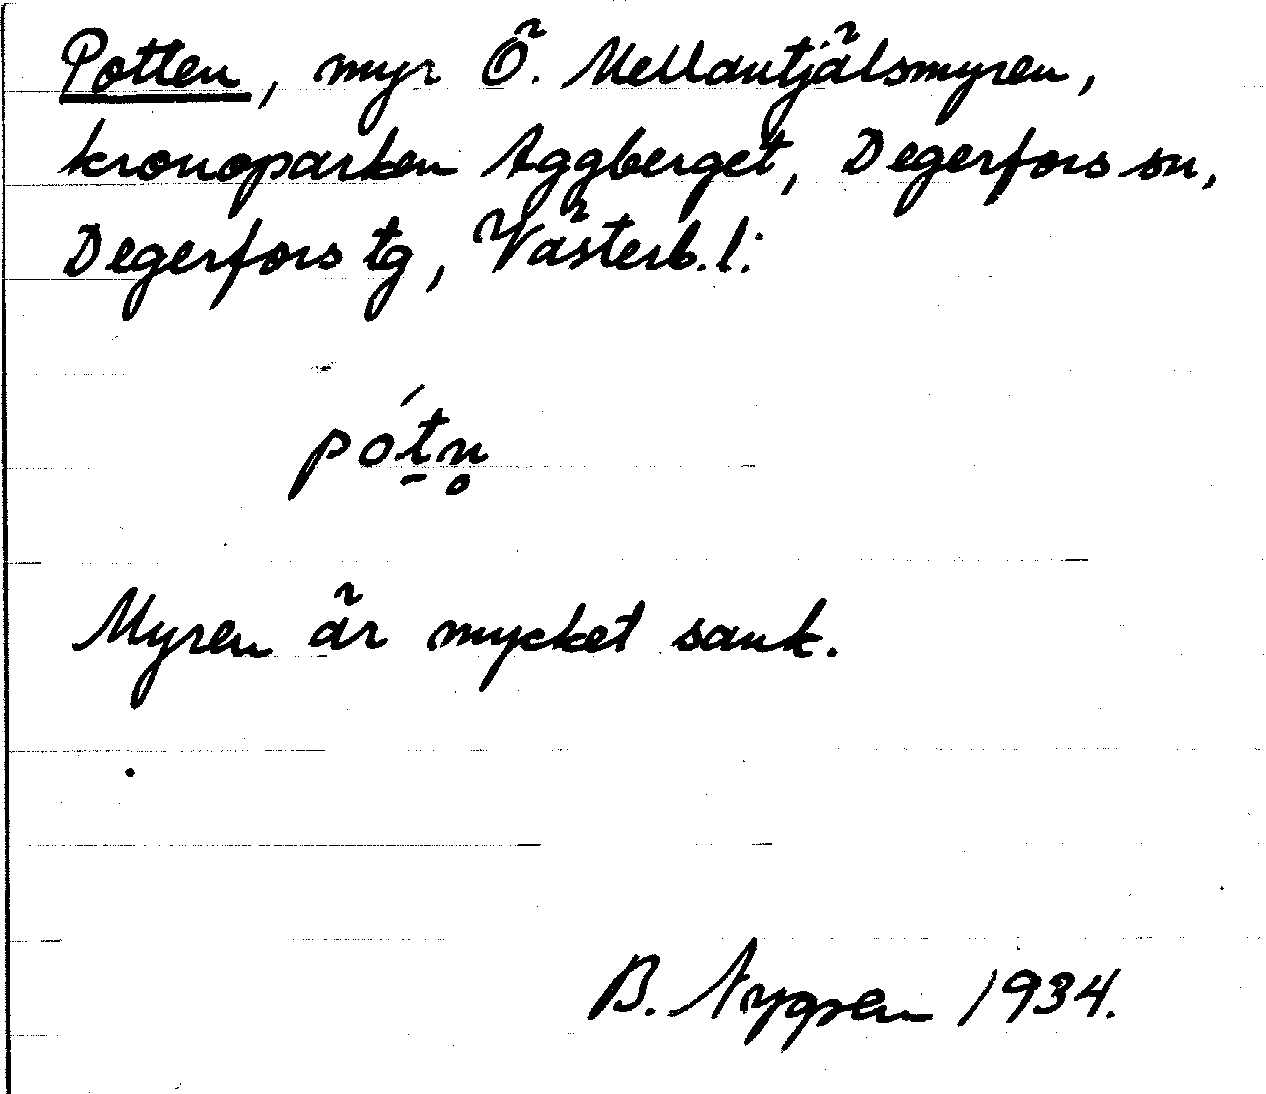 Potten, myr Ö. Mellantjälsmyren,
kronoparken Aggberget, Degerfors sn,
Degerfors tg, Västerb. l:
pót̠n̥
Myren är mycket sank.
B. Nygren 1934.